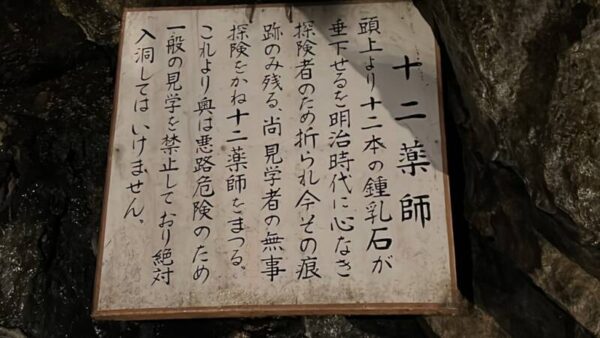 十二薬師
頭上より十二本の鍾乳石が
垂下せるを明治時代に心なき
探険者のため折られ今その痕
跡のみ残る、尚見学者の無事
探険をかね十二薬師をまつる、
これより奥は悪路危険のため
一般の見学を禁止しており絶対
入洞してはいけません。